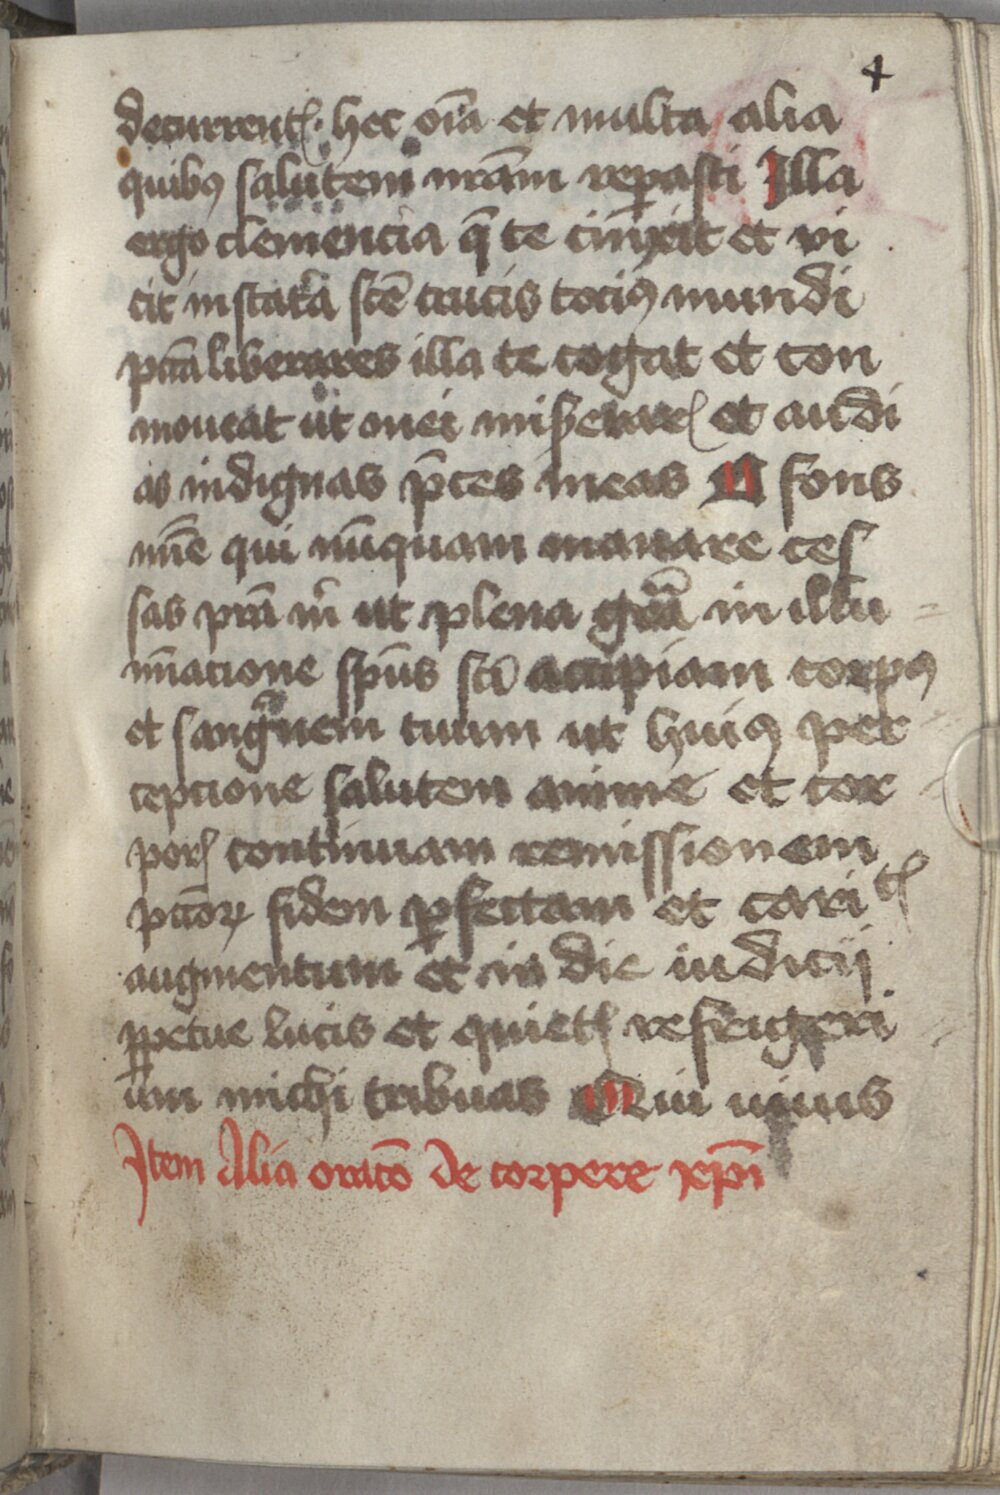 4
decurrentꝭ hec oīa et multa alia
quibꝰ salutem nrām reꝑasti Illa
ergo clemencia q̄ te cinxit et vi
cit in statera scē crucis tociꝰ mundi
pctā liberares illa te cogat et con
moueat ut mei miserearꝭ et audi
as indignas p̄ces meas O fons
mīe qui nūquam manare ces
sas prā m̄ ut plena grā in illu
mīacione spūs scī accipiam corpꝰ
et sangnem tuum ut huiꝰ per
cepcione salutem anime et cor
porꝭ continuam remissionem
pctōꝝ fidem ꝑfectam et caritꝭ
augmentum et in die iudicij
ꝑpetue lucis et quietꝭ refrigeri
um michi tribuas Qui uiuis
Item Alia oracō de corpere xp̄i